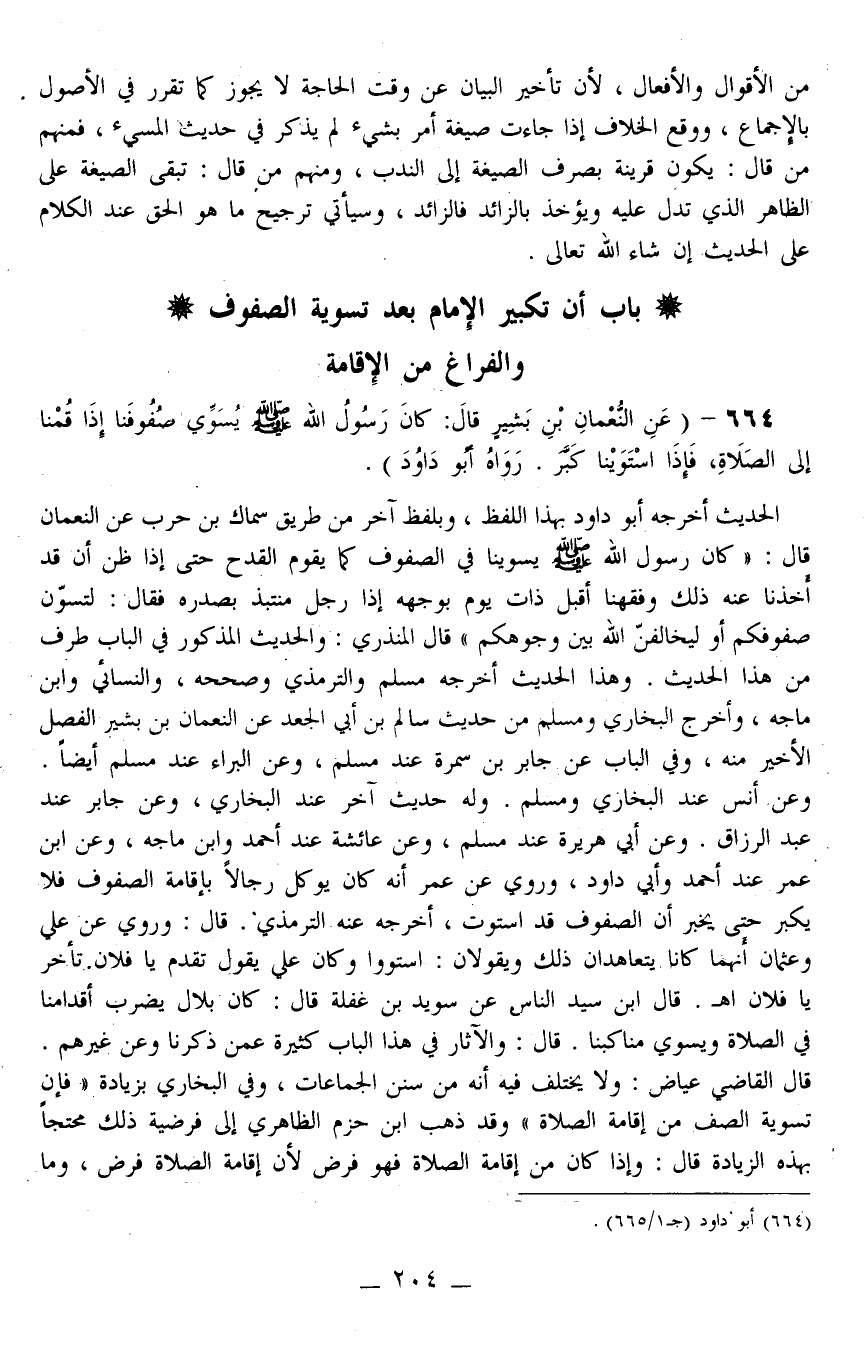 من الأقوال والأفعال ، لأن تأخير البيان عن وقت الحاجة لا يجوز كما تقرر في الأصول
بالإجماع ، ووقع الخلاف إذا جاءت صيغة أمر بشيء لم يذكر في حديث المسيء ، فمنهم
من قال : يكون قرينة بصرف الصيغة إلى الندب ، ومنهم من قال : تبقى الصيغة على
الظاهر الذي تدل عليه ويؤخذ بالزائد فالزائد ، وسيأتي ترجيح ما هو الحق عند الكلام
على الحديث إن شاء الله تعالى .
✸ باب أن تكبير الإمام بعد تسوية الصفوف ✸
والفراغ من الإقامة
٦٦٤ – ( عَنِ النُّعْمانِ بْنِ بَشِيرٍ قالَ: كانَ رَسُولُ الله ﷺ يُسَوِّي صُفُوفَنا إِذَا قُمْنا
إلى الصَّلَاةِ، فَإِذَا اسْتَوَيْنا كَبَّرَ . رَوَاهُ أَبُو دَاوُدَ ) .
الحديث أخرجه أبو داود بهذا اللفظ ، وبلفظ آخر من طريق سماك بن حرب عن النعمان
قال : « كان رسول الله ﷺ يسوينا في الصفوف كما يقوم القدح حتى إذا ظن أن قد
أخذنا عنه ذلك وفقهنا أقبل ذات يوم بوجهه إذا رجل منتبذ بصدره فقال : لتسوّن
صفوفكم أو ليخالفنّ الله بين وجوهكم » قال المنذري : والحديث المذكور في الباب طرف
من هذا الحديث . وهذا الحديث أخرجه مسلم والترمذي وصححه ، والنسائي وابن
ماجه ، وأخرج البخاري ومسلم من حديث سالم بن أبي الجعد عن النعمان بن بشير الفصل
الأخير منه ، وفي الباب عن جابر بن سمرة عند مسلم ، وعن البراء عند مسلم أيضاً .
وعن أنس عند البخاري ومسلم . وله حديث آخر عند البخاري ، وعن جابر عند
عبد الرزاق . وعن أبي هريرة عند مسلم ، وعن عائشة عند أحمد وابن ماجه ، وعن ابن
عمر عند أحمد وأبي داود ، وروي عن عمر أنه كان يوكل رجالاً بإقامة الصفوف فلا
يكبر حتى يخبر أن الصفوف قد استوت ، أخرجه عنه الترمذي . قال : وروي عن علي
وعثمان أنهما كانا يتعاهدان ذلك ويقولان : استووا وكان علي يقول تقدم يا فلان. تأخر
يا فلان اهـ . قال ابن سيد الناس عن سويد بن غفلة قال : كان بلال يضرب أقدامنا
في الصلاة ويسوي مناكبنا . قال : والآثار في هذا الباب كثيرة عمن ذكرنا وعن غيرهم .
قال القاضي عياض : ولا يختلف فيه أنه من سنن الجماعات ، وفي البخاري بزيادة « فإن
تسوية الصف من إقامة الصلاة » وقد ذهب ابن حزم الظاهري إلى فرضية ذلك محتجاً
بهذه الزيادة قال : وإذا كان من إقامة الصلاة فهو فرض لأن إقامة الصلاة فرض ، وما
(٦٦٤) أبو داود (جـ١/٦٦٥) .
_ ٢٠٤ _